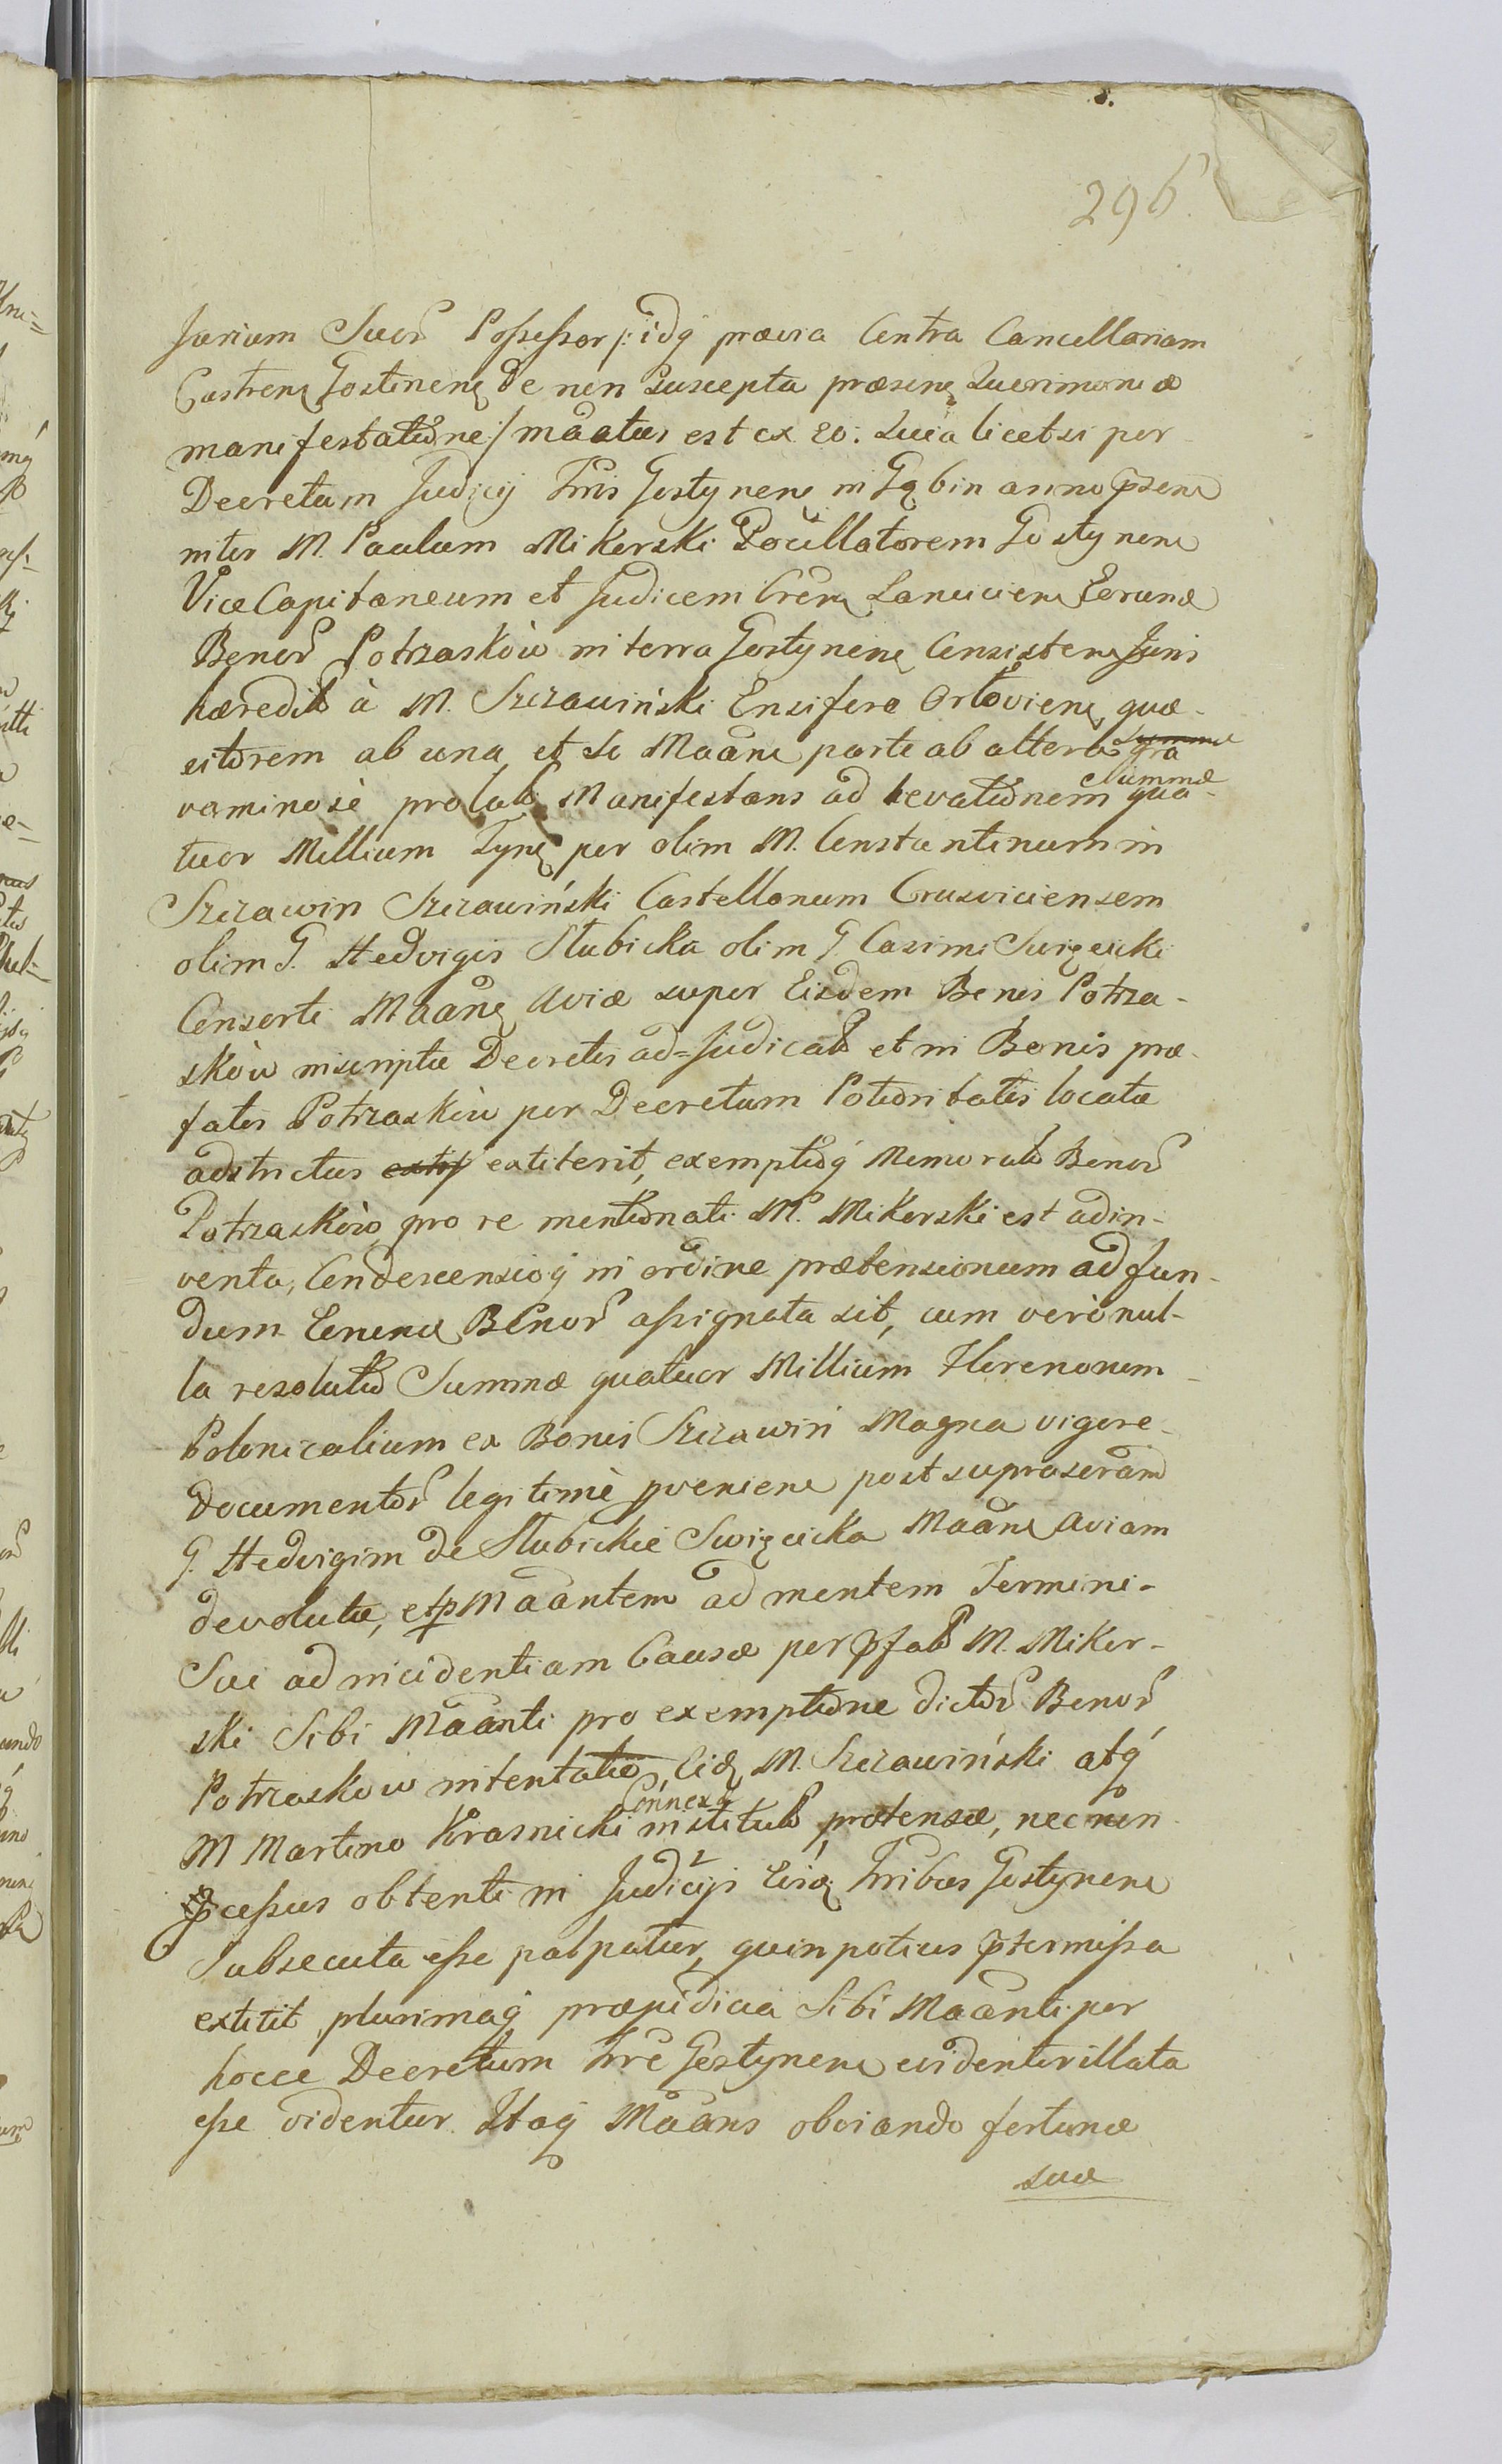 296.
sarium Suor Possessor /: idq prævia Contra Cancellariam
Castren Gostinen de non Suscepta præsen Querimoniæ
manifestatione :/ mãatus est ex eo. Quia licet si per
Decretum Judicij Tris Gostynen in Gąbin anno p̃sen
inter M. Paulum Mikorski Pocillatorem Gostynen
ViceCapitaneum et Judicem Cren Lancicien Eorund
Bonor Potrzasków in terra Gostynen Consisten Juris
hæredit à M. Szczawiński Ensifero Orłovien quæ-
sitorem ab una, et Se Mãan parte ab altera gra
vaminosè prolat Manifestans ad levationem Summæ qua-
tuor Millium Tyn per olim M. Constantinum in
Szczawin Szczawiński Castellanum Crusviciensem
olim G. Hedvigis Słubicka olim G. Casimi Swięcicki
Consorti Mãan Aviæ super Eisdem Bonis Potrza-
sków inscriptæ Decretis ad=judicat et in Bonis præ-
fatis Potrzasków per Decretum Potioritatis locatæ
adstrictus extiterit, exemptioq Memorat Bonor
Potrzasków pro re mentionati M. Mikorski est adin-
venta, Condescensioq in ordine prætensionum ad fun-
dum Eorund Bonor assignata sit, cum verò nul-
la resolutio Summæ quatuor Millium Florenorum
Polonicalium ex Bonis Szczawin Magna vigore
Documentor legitimè proenien post supraseram
G. Hedvigim de Słubickie Swięcicka Mãan Aviam
devolutæ, et p Mãantem ad mentem Termini
Sui ad incidentiam Causæ per p̃fat M. Mikor-
ski Sibi Mãanti pro exemptione dictor Bonor
Potrzaskow intentatæ Eid M. Szczawiński atq
M Martino Krasnicki Connexa institut prætensæ, nec non
Pcessus obtenti in Judicijs Eisd Tribus Gostynen
Subsecuta esse palpatur, quin potius p̃termissa
extitit plurimaq præjudicia Sibi Mãanti per
hocce Decretum Tre Gostynen evidenter illata
esse videntur. Itaq Mãans obviando fortunæ
suæ